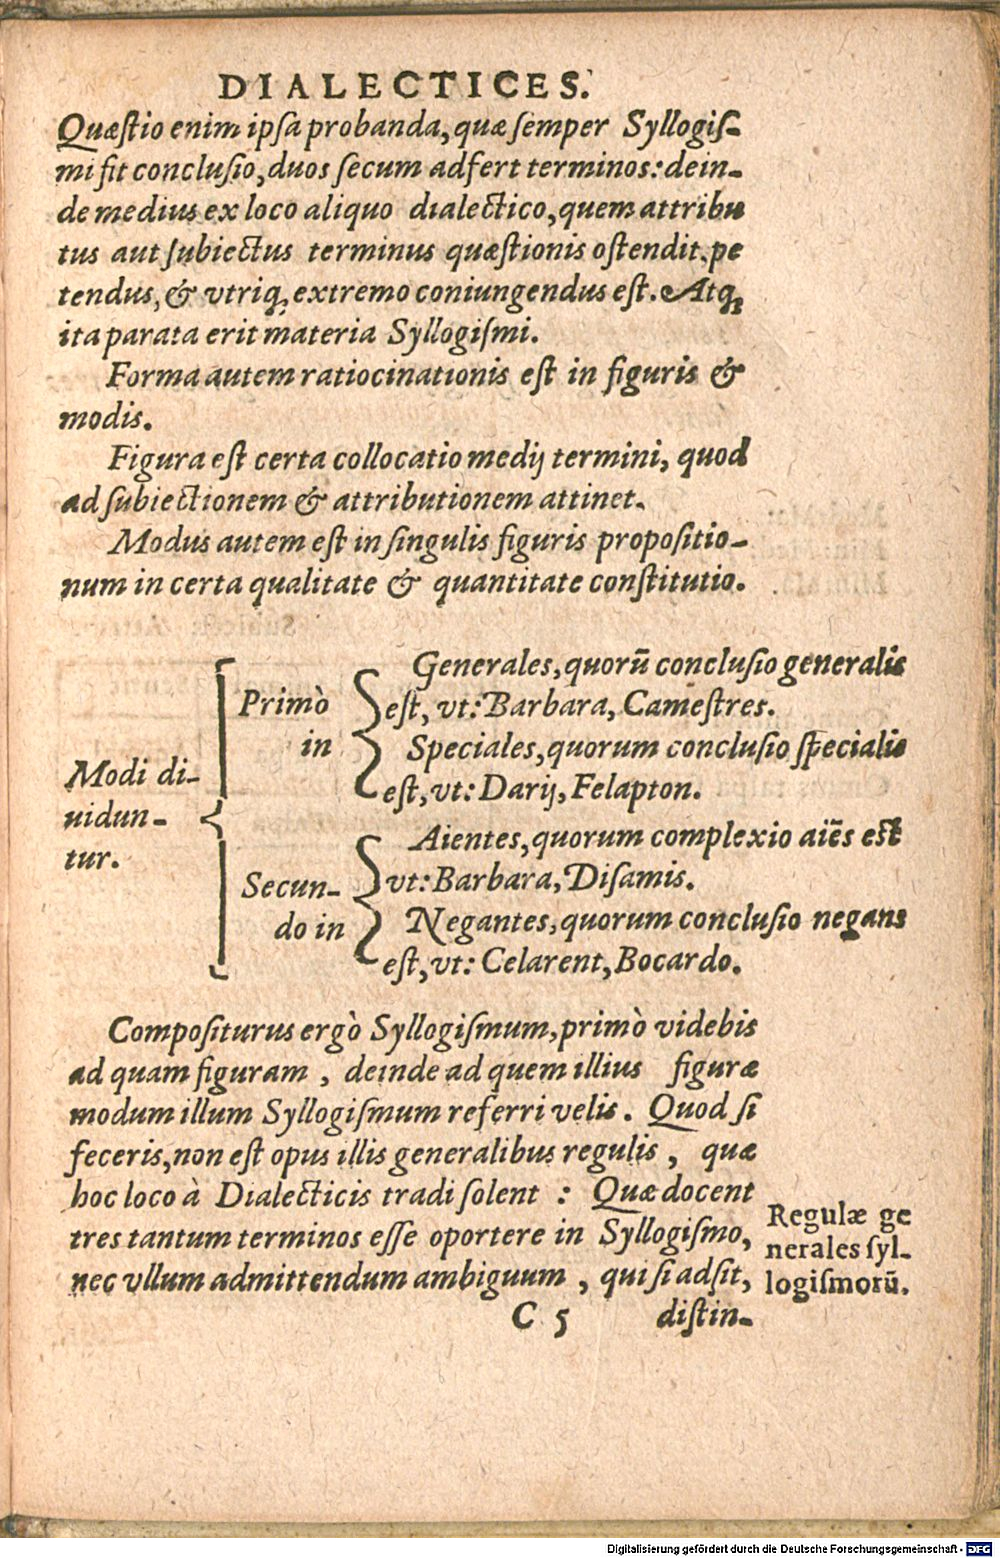 DIALECTICES.
Quæſtio enim ipſa probanda, quæ ſemper Syllogiſ-
mi fit concluſio, duos ſecum adfert terminos: dein-
de medius ex loco aliquo dialectico, quem attribu
tus aut ſubiectus terminus quæſtionis oſtendit, pe
tendus, & vtriq; extremo coniungendus eſt. Atq;
ita parata erit materia Syllogiſmi.
Forma autem ratiocinationis eſt in figuris &
modis.
Figura eſt certa collocatio medij termini, quod
ad ſubiectionem & attributionem attinet.
Modus autem eſt in ſingulis figuris propoſitio-
num in certa qualitate & quantitate conſtitutio.
Modi di-
uidun-
tur.
Primò
in
Generales, quorū concluſio generalis
eſt, vt: Barbara, Cameſtres.
Speciales, quorum concluſio ſpecialis
eſt, vt: Darij, Felapton.
Secun-
do in
Aientes, quorum complexio aiēs eſt
vt: Barbara, Diſamis.
Negantes, quorum concluſio negans
eſt, vt: Celarent, Bocardo.
Compoſiturus ergò Syllogiſmum, primò videbis
ad quam figuram, deinde ad quem illius figuræ
modum illum Syllogiſmum referri velis. Quod ſi
feceris, non eſt opus illis generalibus regulis, quæ
hoc loco à Dialecticis tradi ſolent: Quæ docent
tres tantum terminos eſſe oportere in Syllogiſmo,
nec vllum admittendum ambiguum, qui ſi adſit,
Regulæ ge
nerales ſyl-
logiſmorū.
C 5 diſtin-
Digitalisierung gefördert durch die Deutsche Forschungsgemeinschaft - DFG